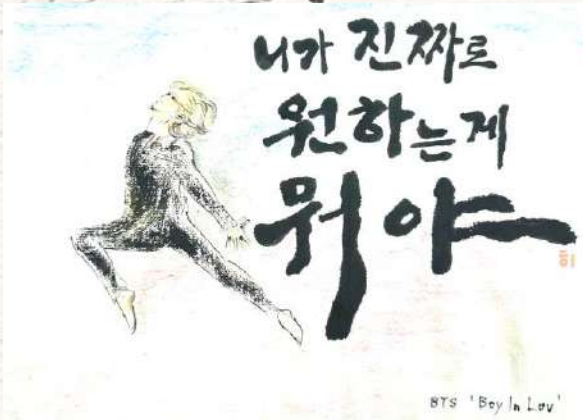 니가 진짜로
원하는게
뭐야
BTS 'Boy In Luv'